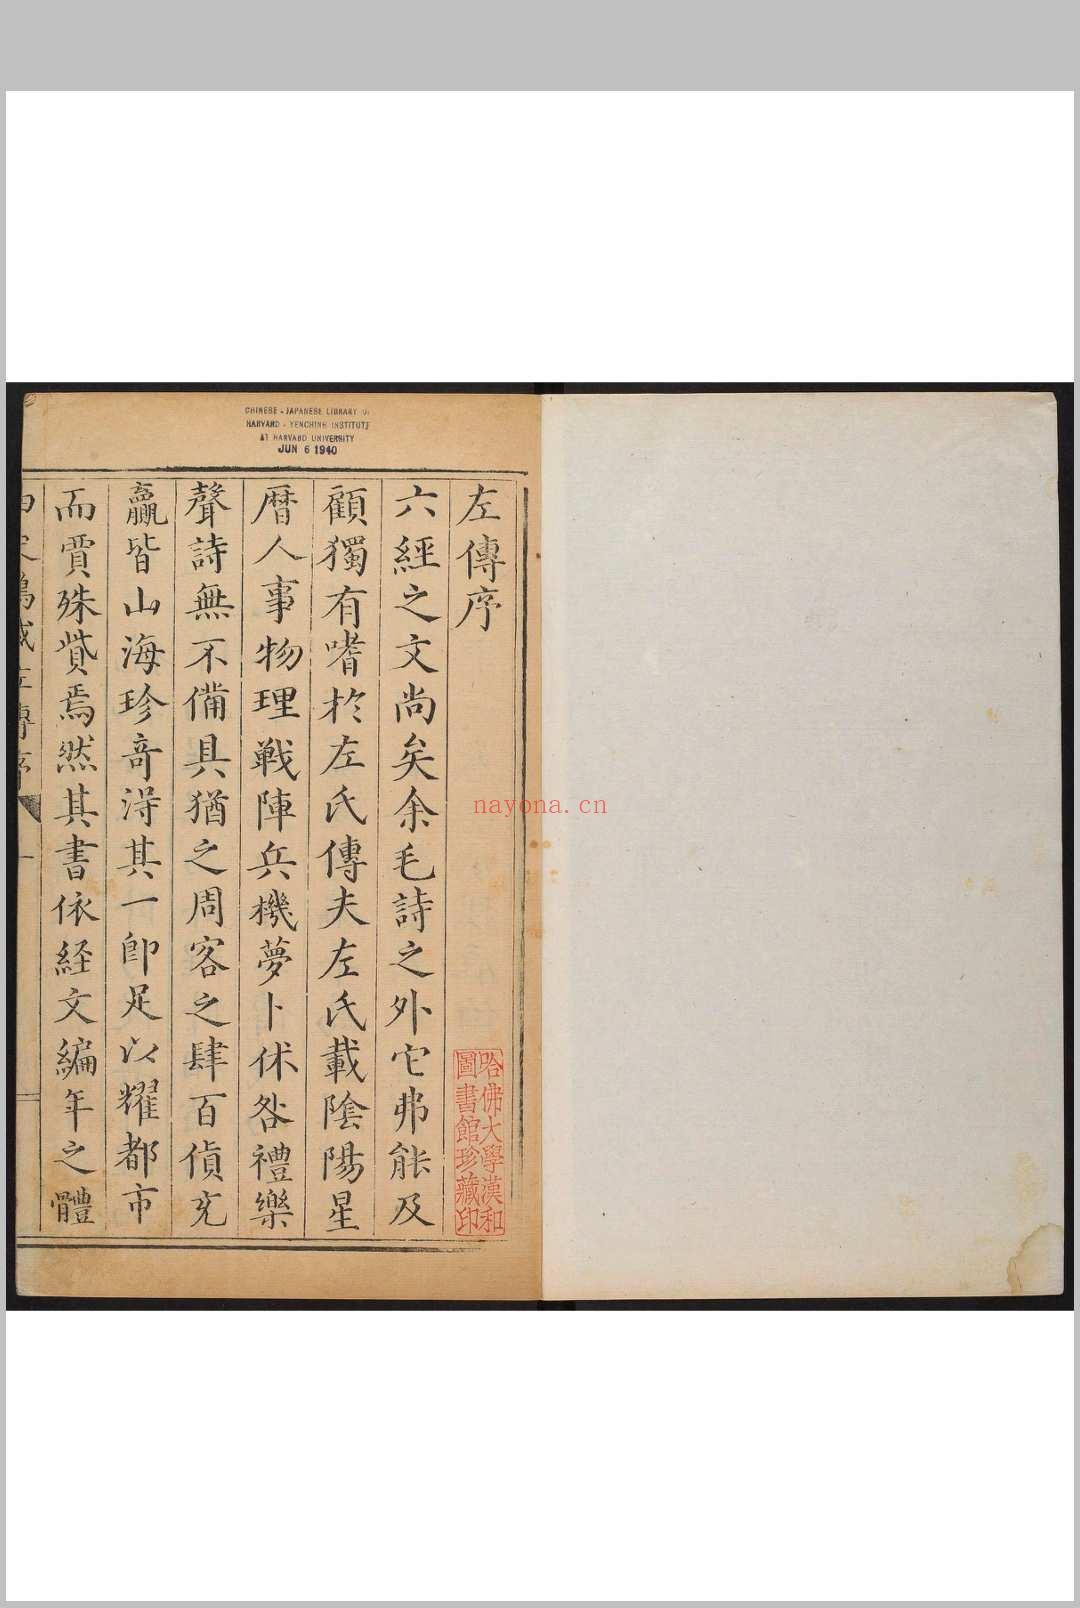 CHINESE - JAPANESE LIBRARY OF
HARVARD - YENCHING INSTITUTE
AT HARVARD UNIVERSITY
JUN 6 1940
左傳序
六經之文尚矣余毛詩之外它弗能及
顧獨有嗜於左氏傳夫左氏載陰陽星
曆人事物理戰陣兵機夢卜休咎禮樂
聲詩無不備具猶之周客之肆百貨充
贏皆山海珍奇淂其一即足以耀都市
而賈殊貲焉然其書依経文編年之體
左傳序
一
哈佛大學漢和
圖書館珍藏印
nayona.cn